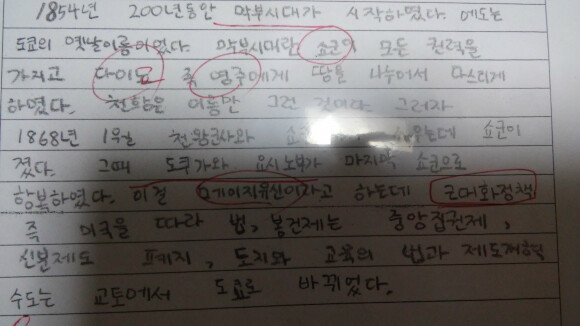 1854년 200년동안 막부시대가 시작하였다. 에도는
도쿄의 옛날이름이었다. 막부시대란 쇼군이 모든 권력을
가지고 다이묘 즉 영주에게 땅를 나누어서 다스리게
하였다. 천황은 이름만 그런 것이다. 그러자
1868년 1월 천왕군사와 우는데 쇼군이
졌다. 그때 도쿠가와 요시노부가 마지막 쇼군으로
항복하였다. 이걸 메이지유신이라고 하는데 근대화정책
즉 미국을 따라 법, 봉건제는 중앙집권제,
신분제도 폐지, 토지와 교육의 법과 제도개혁
수도는 교토에서 도쿄로 바뀌었다.